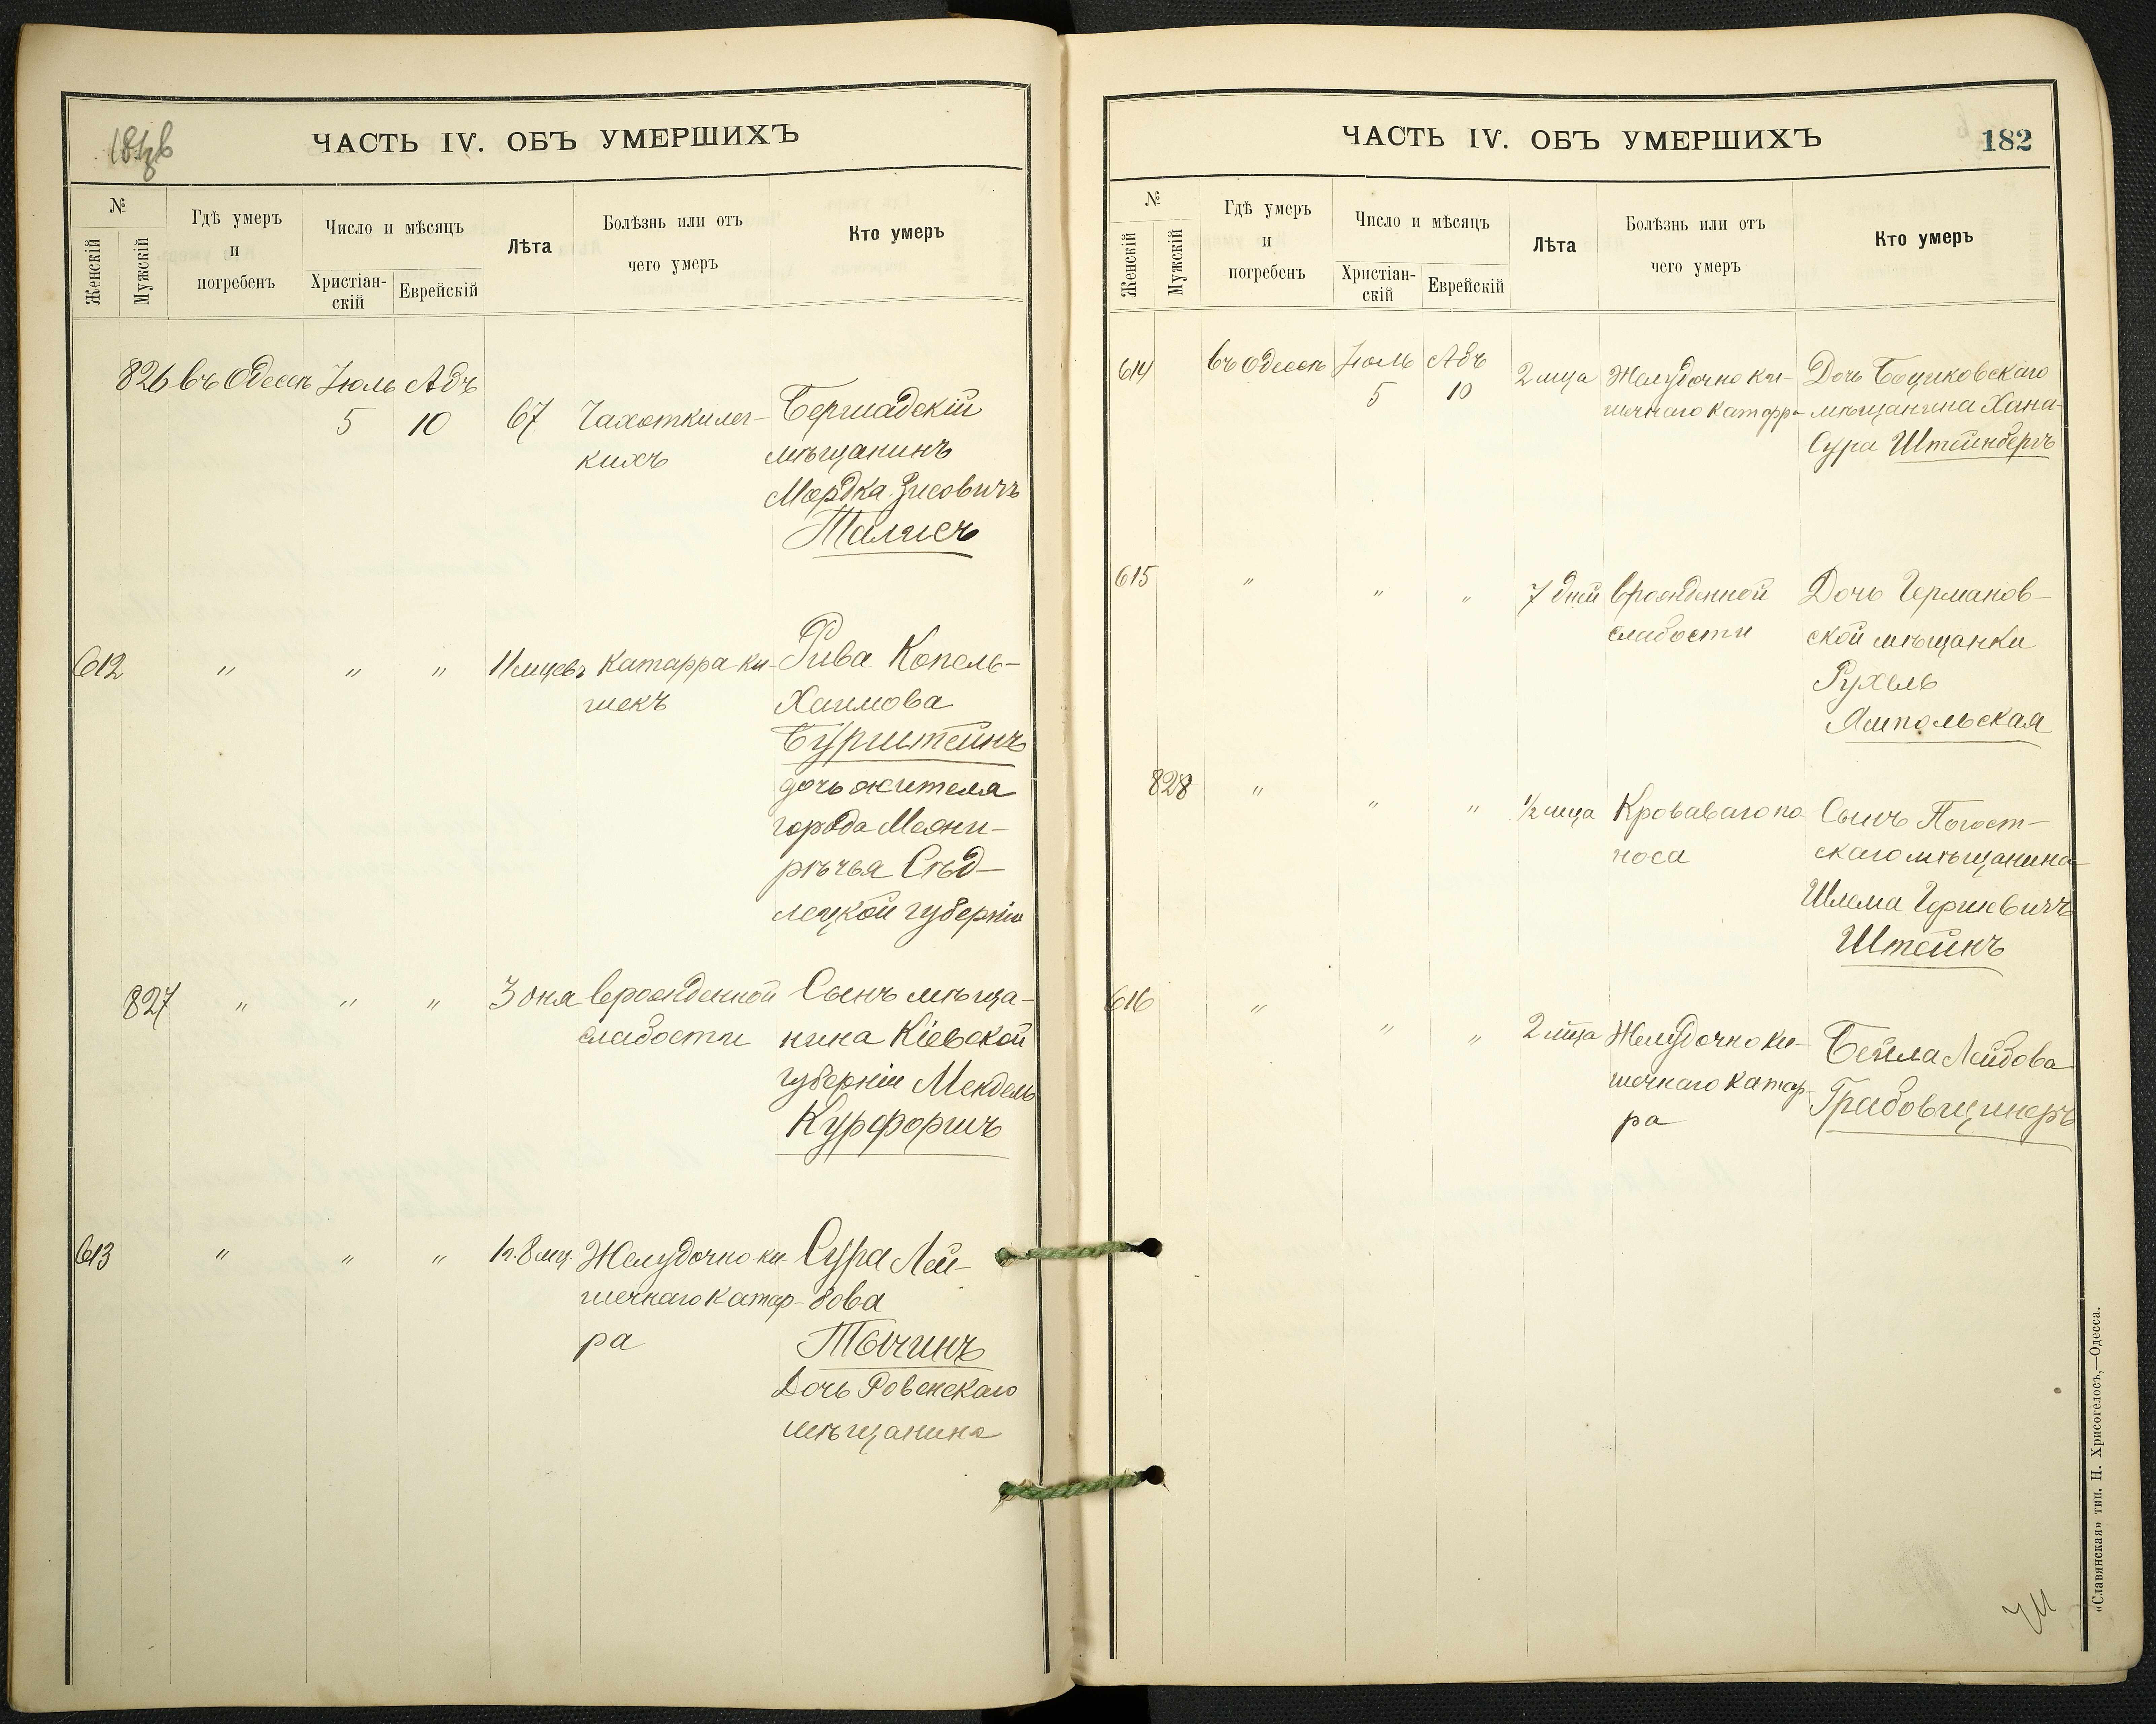 ЧАСТЬ IV. ОБЪ УМЕРШИХЪ
№
Женскій
Мужскій
Гдѣ умеръ
и
погребенъ
Число и мѣсяцъ
Христіан-
скій
Еврейскій
Лѣта
Болѣзнь или отъ
чего умеръ
Кто умеръ
826 въ Одессѣ Іюль Авъ
5 10 67 Чахотки лег-
кихъ
Бершадскій
мѣщанинъ
Мордка Зисовичъ
Талисъ
612 " " " 11 мцевъ Катарра ки-
шекъ
Рива Копель-
Хаимова
Бурштейнъ
дочь жителя
города Межи-
рѣчья Сѣд-
лецкой губерніи
827 " " " 3 дня врожденной
слабости
Сынъ мѣща-
нина Кіевской
губерніи Мендель
Курфоричъ
613 " " " 1 г. 8 мц. Желудочно-ки-
шечнаго катар-
ра
Сура Лей-
бова
Тычинъ
Дочь Ровенскаго
мѣщанина
ЧАСТЬ IV. ОБЪ УМЕРШИХЪ
182
№
Женскій
Мужскій
Гдѣ умеръ
и
погребенъ
Число и мѣсяцъ
Христіан-
скій
Еврейскій
Лѣта
Болѣзнь или отъ
чего умеръ
Кто умеръ
614 въ Одессѣ Іюль Авъ
5 10 2 мца Желудочно ки-
шечнаго катарра
Дочь
мѣщанина Хана-
Сура Штейнбергъ
615 " " " 7 дней врожденной
слабости
Дочь Германов-
ской мѣщанки
Рухель
Ямпольская
828 " " " ½ мца Кроваваго по-
носа
Сынъ Погост-
скаго мѣщанина
Шлема Гершевичъ
Штейнъ
616 " " " 2 мца Желудочно ки-
шечнаго катар-
ра
Бейла Лейбова
Грабовщинеръ
«Славянская» тип. Н. Хрисогелосъ,—Одесса.